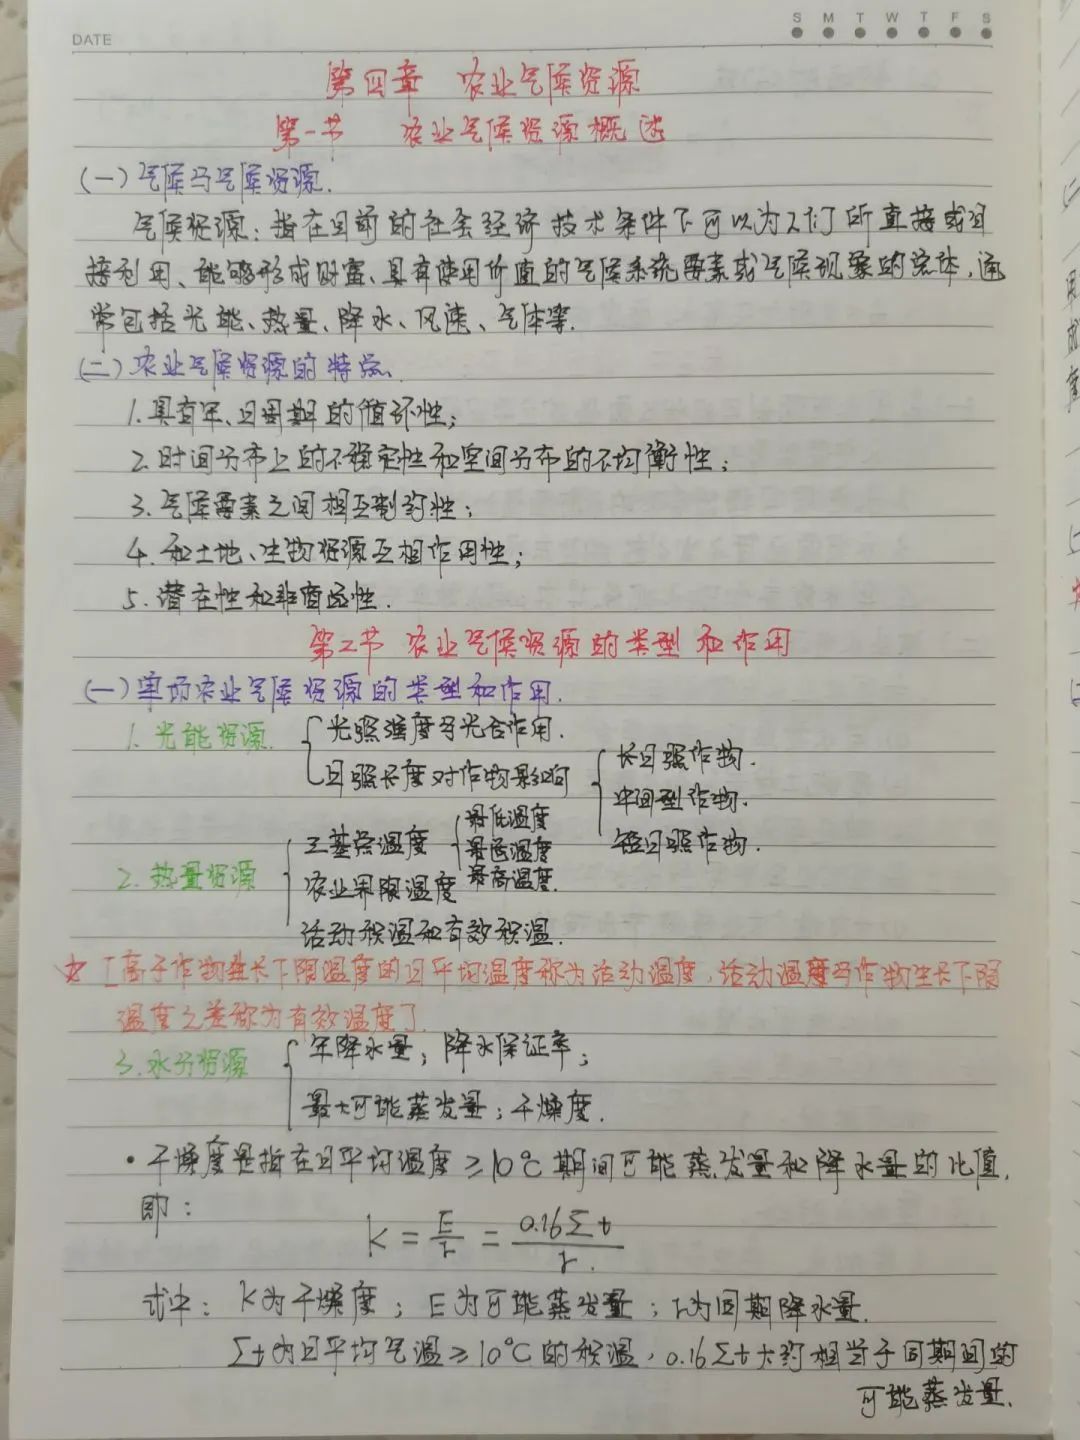 DATE
S M T W T F S
第四章 农业气候资源
第一节 农业气候资源概述
(一)气候与气候资源.
气候资源:指在目前的社会经济技术条件下可以为人们所直接或间
接利用、能够形成财富、具有使用价值的气候系统要素或气候现象的总体,通
常包括光能、热量、降水、风速、气体等.
(二)农业气候资源的特点.
1.具有年、日周期的循环性;
2.时间分布上的不稳定性和空间分布的不均衡性;
3.气候要素之间相互制约性;
4.和土地、生物资源互相作用性;
5.潜在性和非商品性.
第二节 农业气候资源的类型和作用
(一)单项农业气候资源的类型和作用.
1.光能资源.
光照强度与光合作用.
日照长度对作物影响
长日照作物.
中间型作物.
短日照作物.
2.热量资源
三基点温度
最低温度
最适温度
最高温度.
农业界限温度
活动积温和有效积温.
☆[高于作物生长下限温度的日平均温度称为活动温度,活动温度与作物生长下限
温度之差称为有效温度].
3.水分资源
年降水量;降水保证率;
最大可能蒸发量;干燥度.
•干燥度是指在日平均温度≥10℃期间可能蒸发量和降水量的比值.
即:
K = E/r = 0.16Σt/r.
式中:K为干燥度;E为可能蒸发量;r为同期降水量.
Σt为日平均气温≥10℃的积温,0.16Σt大约相当于同期间的
可能蒸发量.